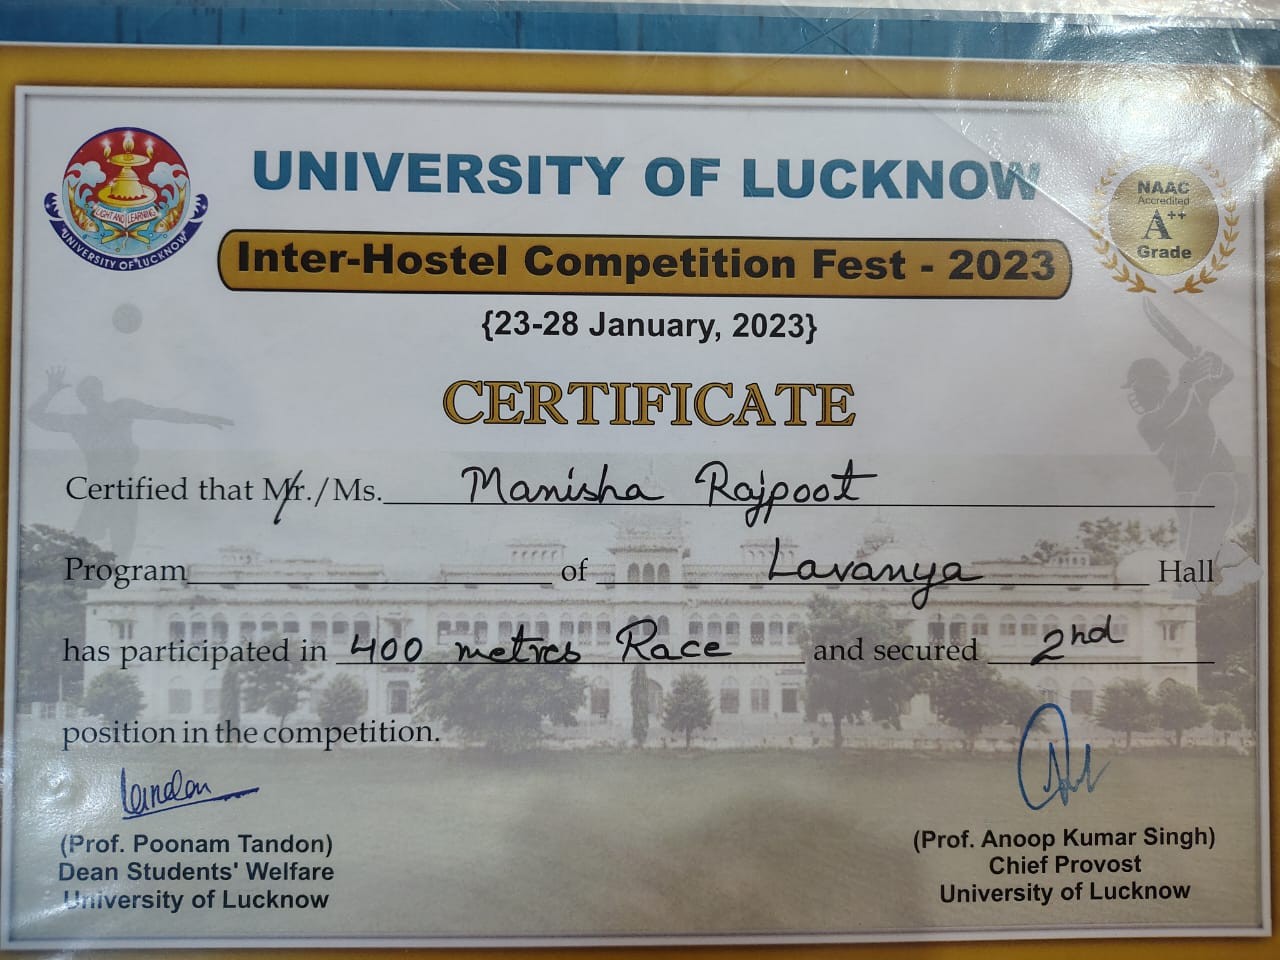 UNIVERSITY OF LUCKNOW
LIGHT AND LEARNING
UNIVERSITY OF LUCKNOW
NAAC
Accredited
A++
Grade
Inter-Hostel Competition Fest - 2023
{23-28 January, 2023}
CERTIFICATE
Certified that Mr./Ms. Manisha Rajpoot
Program of Lavanya Hall
has participated in 400 metres Race and secured 2nd
position in the competition.
(Prof. Poonam Tandon)
Dean Students' Welfare
University of Lucknow
(Prof. Anoop Kumar Singh)
Chief Provost
University of Lucknow